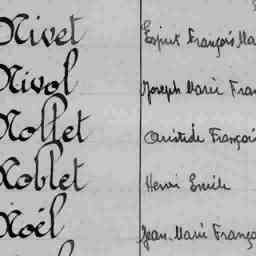 Nivet Esprit François Ma
Nivol Joseph Marie Fran
Nollet Aristide François
Noblet Henri Emile
Noël Jean-Marie Franço